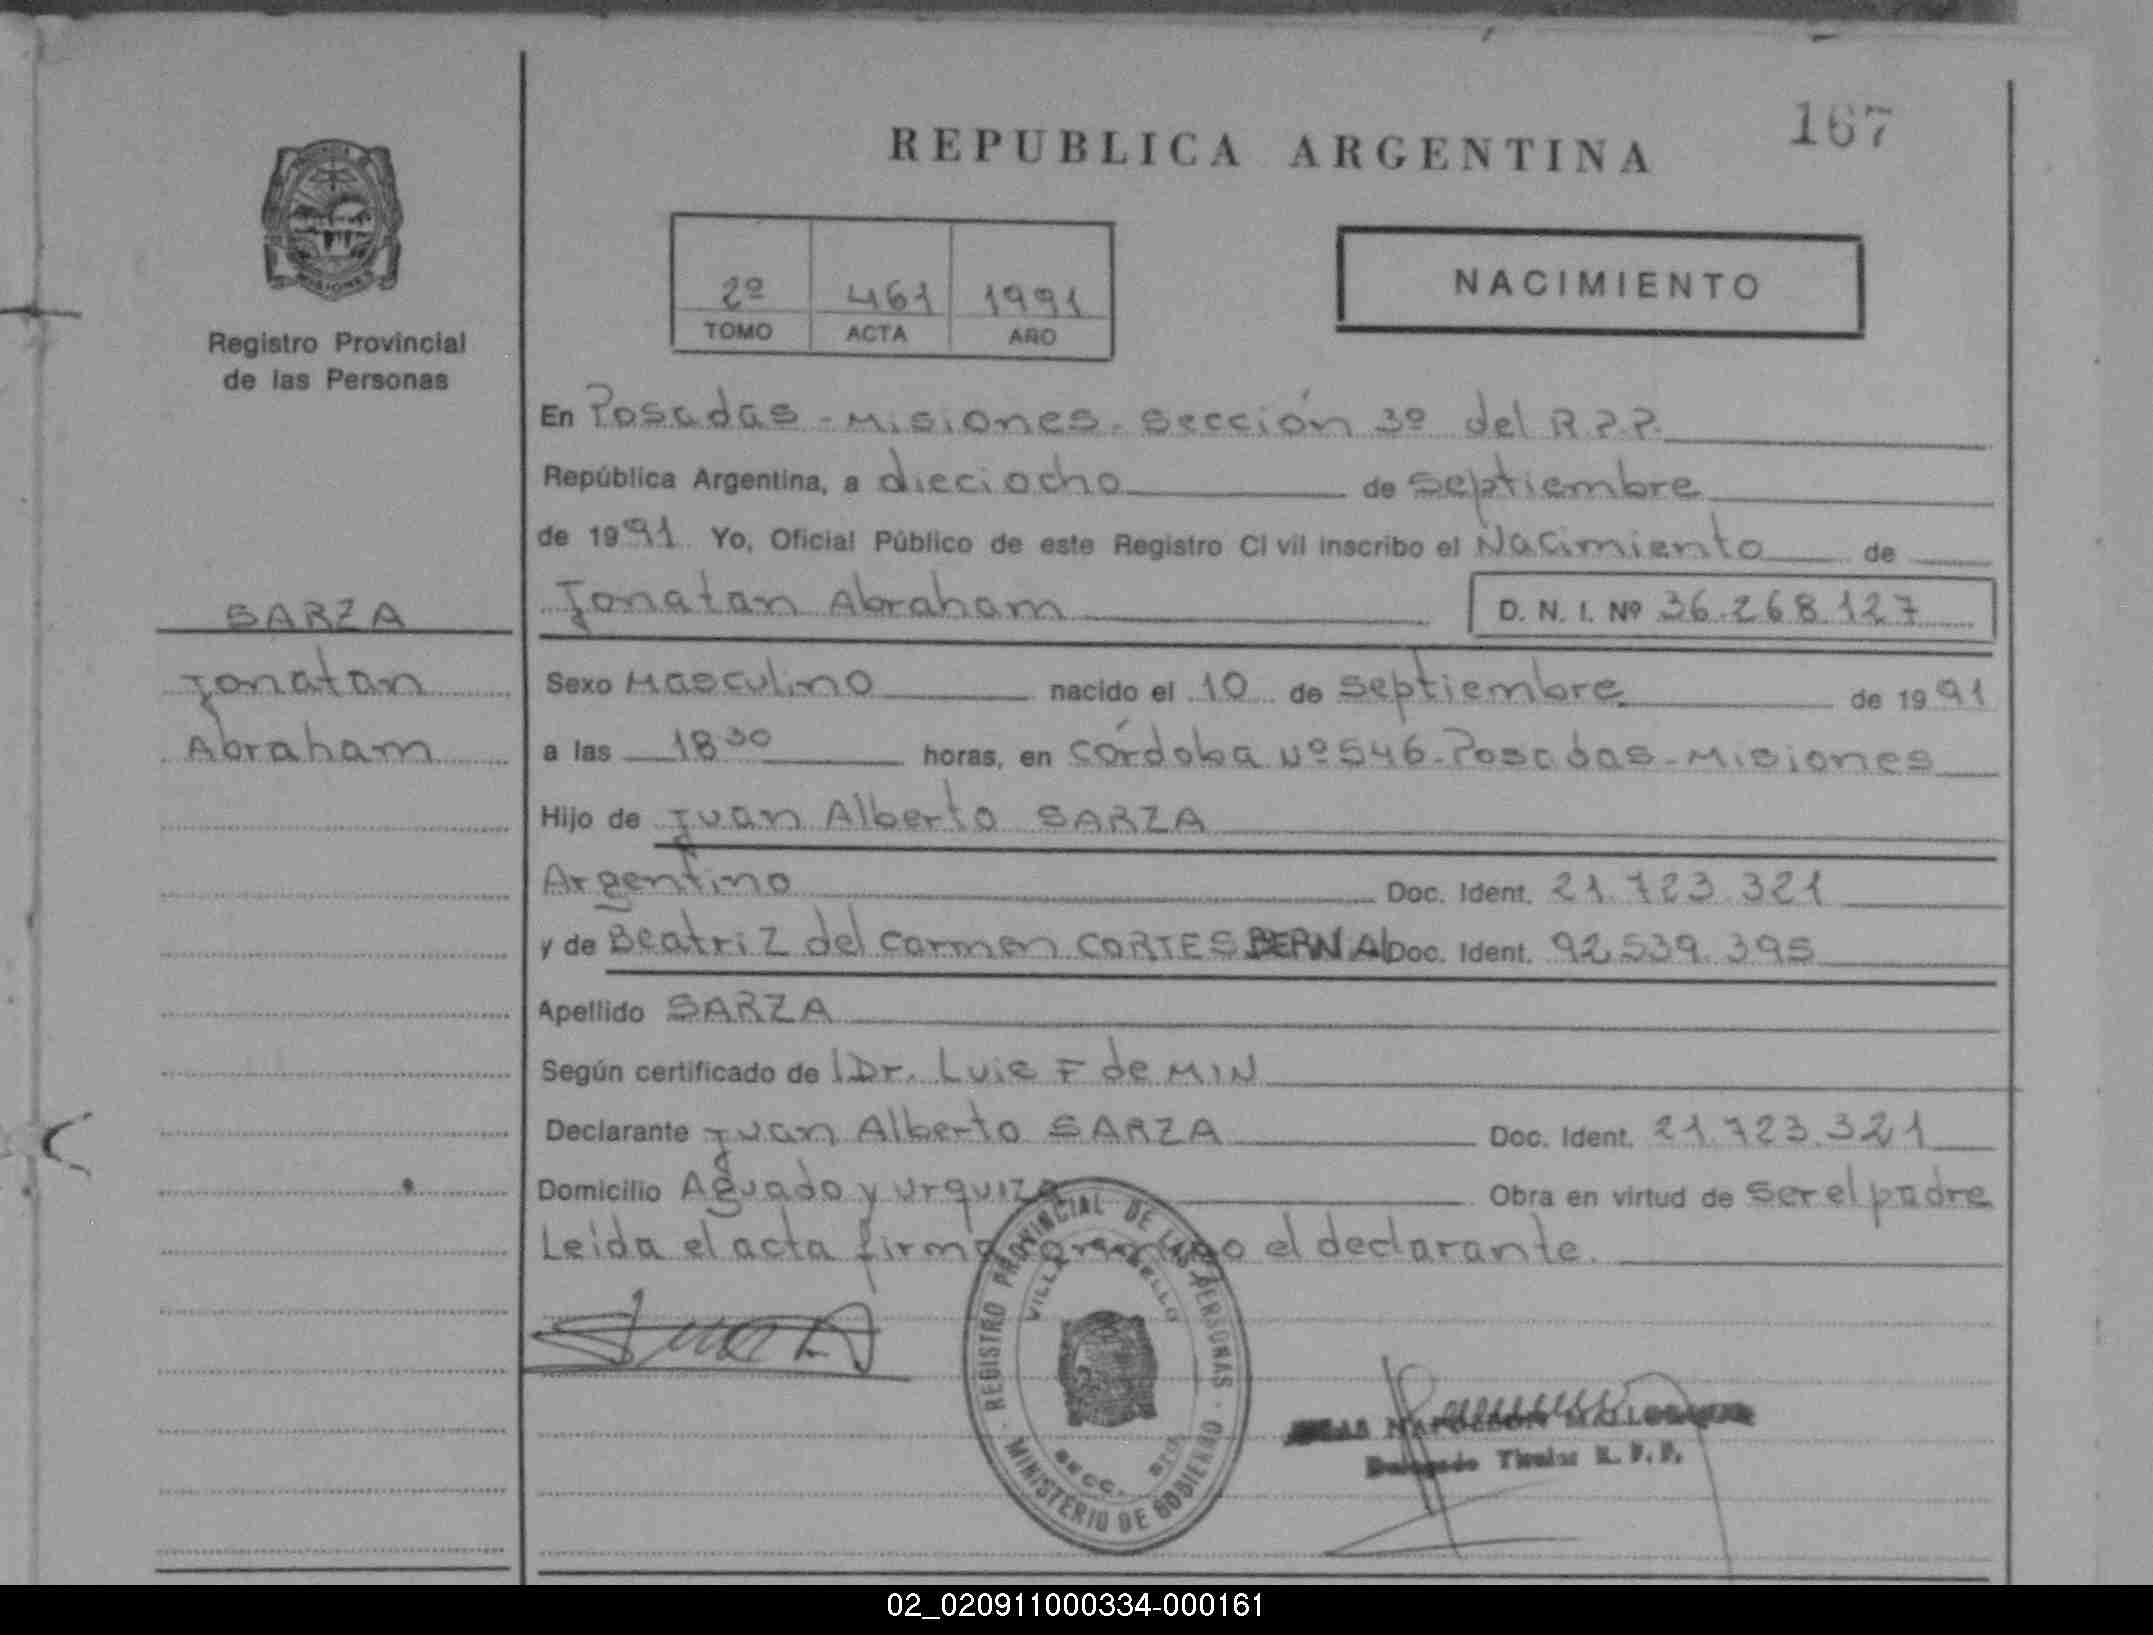 167
REPUBLICA ARGENTINA
NACIMIENTO
2º 461 1991
TOMO ACTA AÑO
Registro Provincial
de las Personas
En Posadas - Misiones - Sección 3º del R.P.P.
República Argentina, a dieciocho de Septiembre
de 1991 Yo, Oficial Público de este Registro Civil inscribo el Nacimiento de
Jonatan Abraham D. N. I. Nº 36.268.127
SARZA
Jonatan
Abraham
Sexo Masculino nacido el 10 de Septiembre de 1991
a las 18 30 horas, en Córdoba Nº 546 - Posadas - Misiones
Hijo de Juan Alberto SARZA
Argentino Doc. Ident. 21.723.321
y de Beatriz del Carmen CORTES BERNAL Doc. Ident. 92.539.395
Apellido SARZA
Según certificado de l Dr. Luis F de MIN
Declarante Juan Alberto SARZA Doc. Ident. 21.723.321
Domicilio Aguado y Urquiza Obra en virtud de ser el padre
Leída el acta firma conmigo el declarante.
REGISTRO PROVINCIAL DE LAS PERSONAS
MINISTERIO DE GOBIERNO
VILLA
SECC.
NAPOLEON
Delegado Titular R. P. P.
02_020911000334-000161